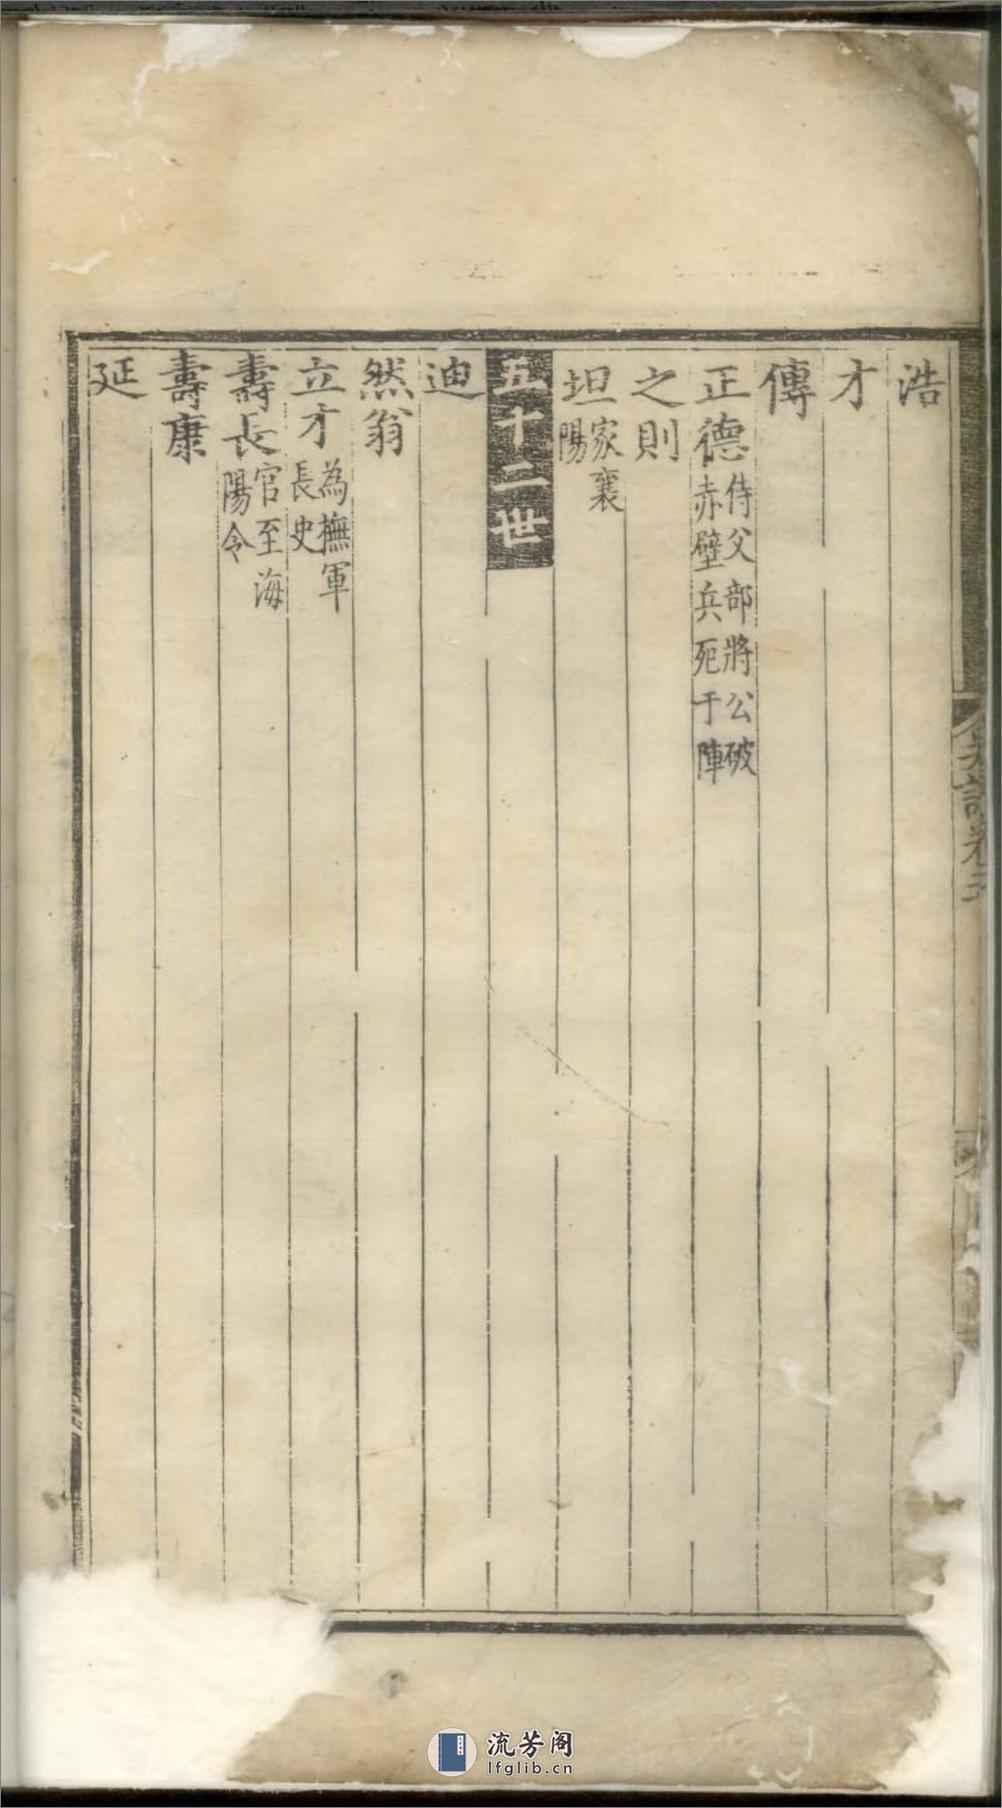 浩
才
傳
正德侍父部將公破赤壁兵死于陣
之則
坦家襄陽
五十二世
迪
然翁
立才為撫軍長史
壽長官至海陽令
壽康
延
譜卷
流芳阁
lfglib.cn